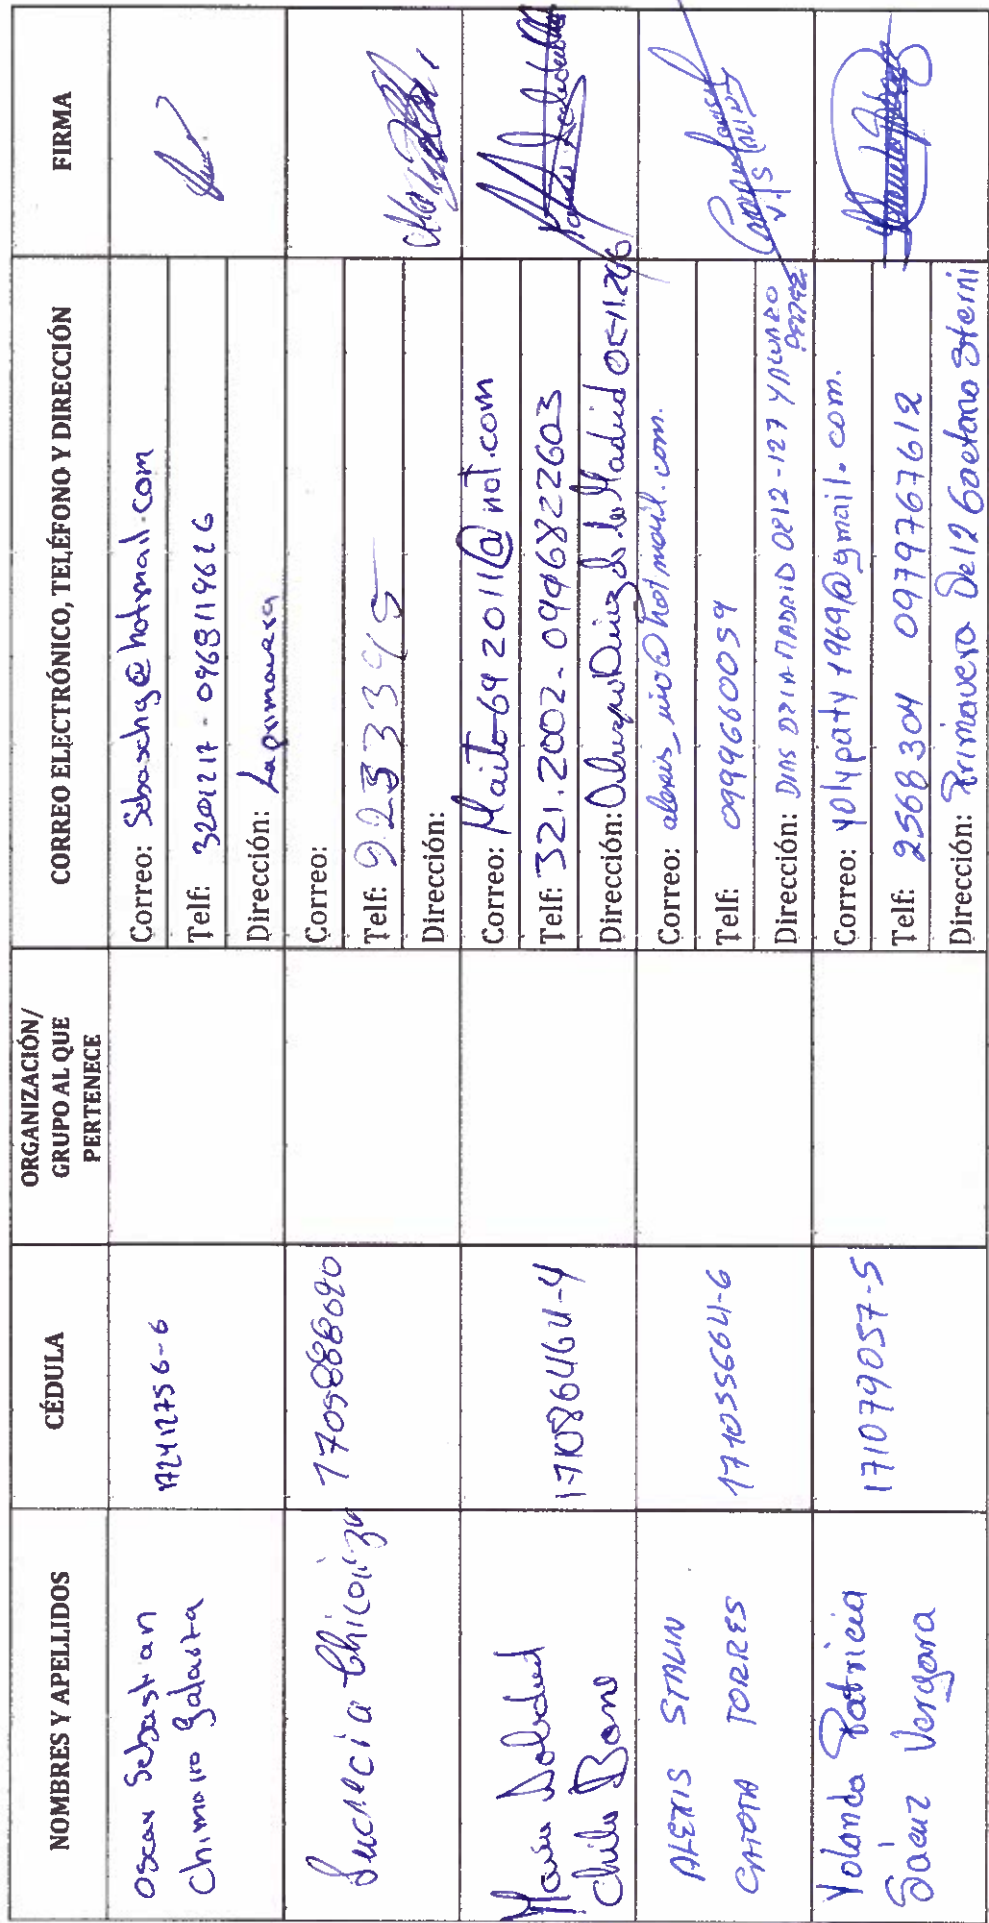 NOMBRES Y APELLIDOS
CÉDULA
ORGANIZACIÓN/
GRUPO AL QUE
PERTENECE
CORREO ELECTRÓNICO, TELÉFONO Y DIRECCIÓN
FIRMA
Oscar Sebastian
Chimarro Galarza
172412756-6
Correo: Sebaschg@hotmail.com
Telf: 3201217 - 0968119626
Dirección: La primavera
Lucrecia Chicaiza
1705888090
Correo:
Telf: 9233395
Dirección:
Maria Soledad
Chile Bono
171086464-4
Correo: Maito-692011@hot.com
Telf: 321.2002-0996822603
Dirección: Diaz de la Madrid OE-11.246
ALEXIS STALIN
GAIOTA TORRES
171055664-6
Correo: alexis_uio@hotmail.com.
Telf: 0999660059
Dirección: DIAS DE LA MADRID OE12-127 Y ALVARO
PEREZ
Yolanda Patricia
Sáenz Vergara
171079057-5
Correo: yolypaty1969@gmail.com.
Telf: 2568304 0979767612
Dirección: Primavera Oe12 Gaetano Sterni